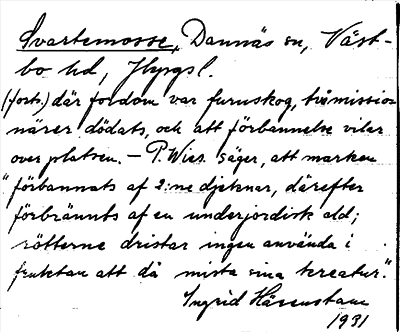 Svartemosse, Dannäs sn, Väst-
bo hd, Jkpgs l.
(forts.) där fordom var furuskog, två missio-
närer dödats, och att förbannelse vilar
over platsen. – P. Wies. säger, att marken
"förbannats af 2:ne djeknar, därefter
förbrännts af en underjordisk eld;
rötterne dristar ingen använda i
fruktan att då mista sina kreatur."
Ingrid Hävenstam
1931